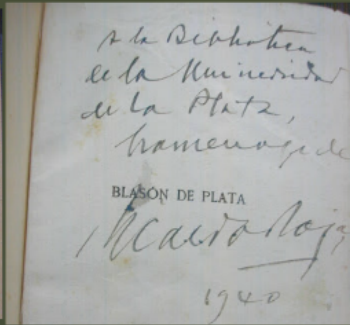 A la Biblioteca
de la Universidad
de La Plata,
homenaje de
BLASÓN DE PLATA
Ricardo Rojas
1940